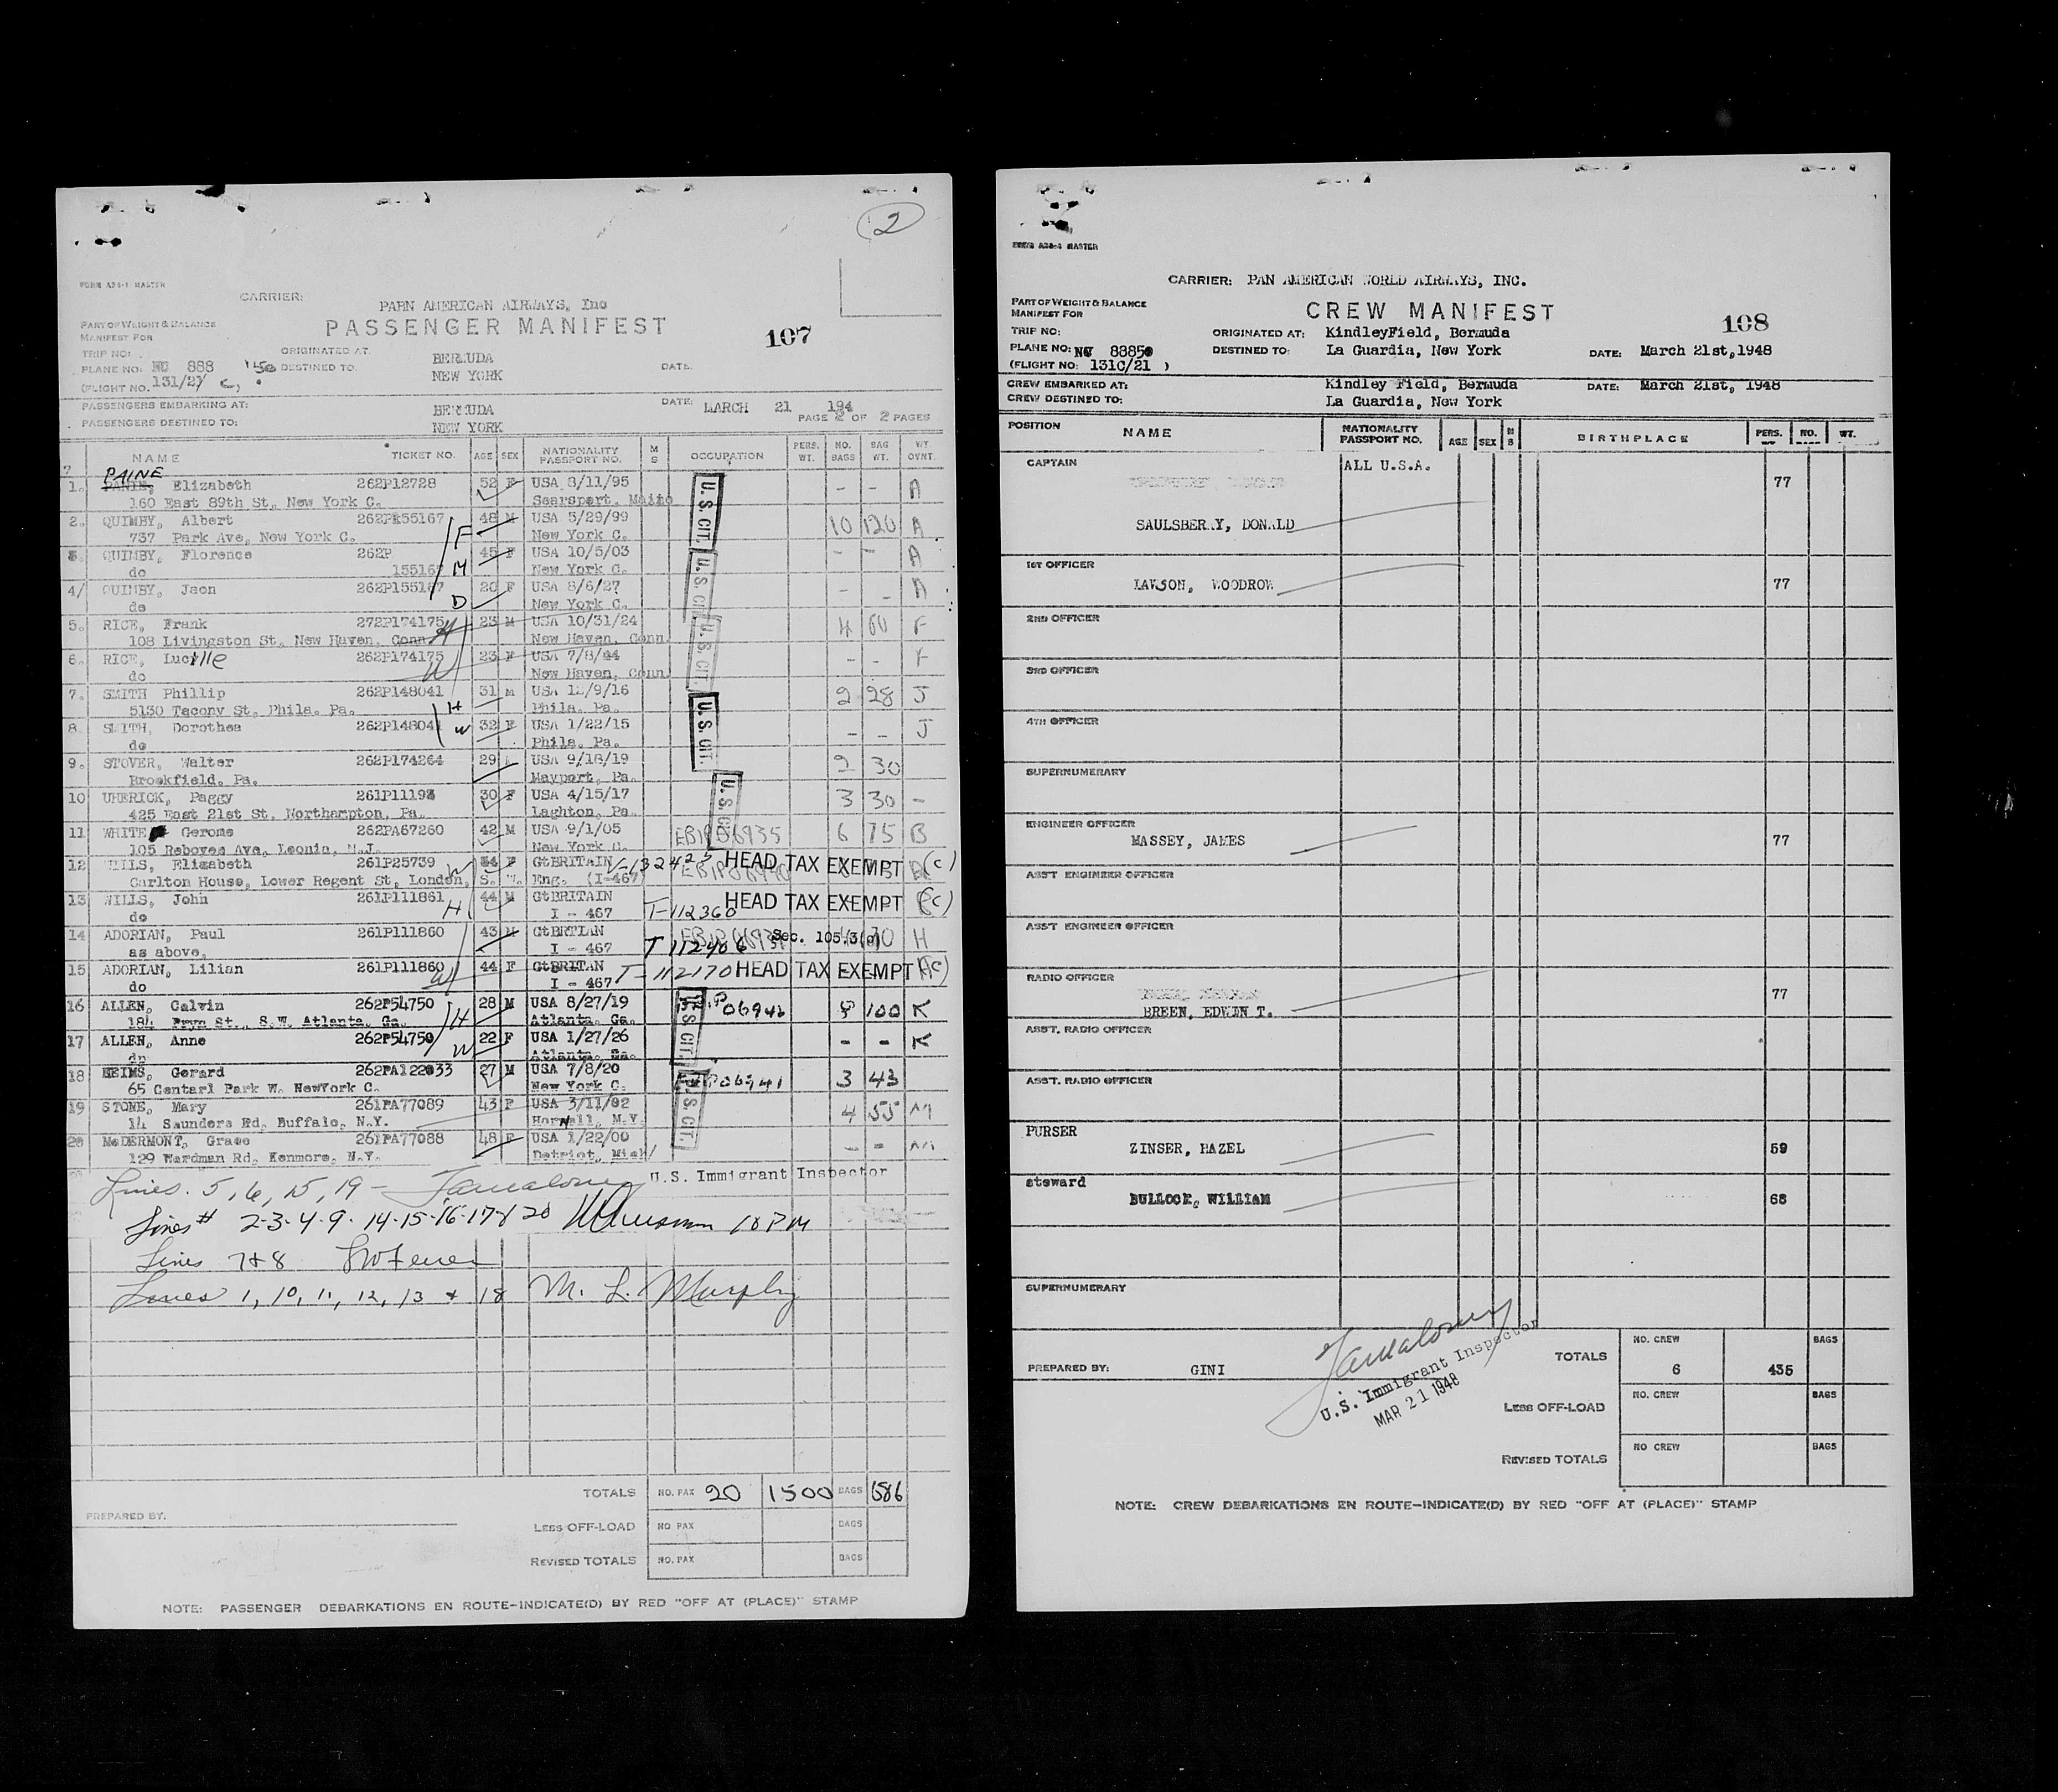 2
FORM ADS-1 MASTER
CARRIER:
PARN AMERICAN AIRWAYS, Inc
PASSENGER MANIFEST
107
PART OF WEIGHT & BALANCE
MANIFEST FOR
TRIP NO:
ORIGINATED AT:
BERMUDA
PLANE NO: NC 888 50
DESTINED TO:
NEW YORK
DATE:
(FLIGHT NO. 131/21 C)
PASSENGERS EMBARKING AT:
BERMUDA
DATE: MARCH 21 194
PASSENGERS DESTINED TO:
NEW YORK
PAGE 2 OF 2 PAGES
NAME TICKET NO. AGE SEX NATIONALITY PASSPORT NO. M S OCCUPATION PERS. WT. NO. BAGS BAG WT. WT. OVNT.
PAINE
1. Elizabeth 262P12728 52 F USA 8/11/95 U.S. CIT. - - A
160 East 89th St, New York C. Searsport, Maine
2. QUIMBY, Albert 262P155167 F 48 M USA 5/29/99 10 120 A
737 Park Ave, New York C. New York C.
3. QUIMBY, Florence 262P 45 F USA 10/5/03 U.S. CIT. - - A
do 155167 M New York C.
4/ QUIMBY, Jaon 262P155167 20 F USA 8/6/27 - - A
do D New York C.
5. RICE, Frank 272P174175 23 M USA 10/31/24 U.S. CIT. 4 60 F
108 Livingston St, New Haven, Conn H New Haven, Conn
6. RICE, Lucille 262P174175 23 F USA 7/8/44 - - F
do W New Haven, Conn
7. SMITH Phillip 262P148041 31 M USA 12/9/16 U.S. CIT. 2 28 J
5130 Tacony St, Phila. Pa. H Phila. Pa.
8. SMITH, Dorothea 262P148041 W 32 F USA 1/22/15 - - J
do Phila. Pa.
9. STOVER, Walter 262P174264 29 USA 9/18/19 2 30
Brookfield, Pa. Mayport, Pa.
10 UHERICK, Peggy 261P11193 30 F USA 4/15/17 U.S. CIT. 3 30 -
425 East 21st St, Northampton, Pa. Laghton, Pa.
11 WHITE Gerome 262PA67260 42 M USA 9/1/05 6 75 B
105 Reboyes Ave, Leonia, N.J. New York C.
12 WILLS, Elizabeth 261P25739 F GtBRITAIN HEAD TAX EXEMPT (c)
Carlton House, Lower Regent St, London, S. W. Eng. (I-467)
13 WILLS, John 261P111861 44 M GtBRITAIN HEAD TAX EXEMPT (c)
do H I - 467 T-112360
14 ADORIAN, Paul 261P111860 43 M GtBRTIAN Sec. 105.3 H
as above, I - 467 T 112406
15 ADORIAN, Lilian 261P111860 44 F GtBRITAN T-112170 HEAD TAX EXEMPT (c)
do W I - 467
16 ALLEN, Calvin 262P54750 H 28 M USA 8/27/19 06946 100 K
184 Pryn St., S.W. Atlanta, Ga. Atlanta, Ga. U.S. CIT.
17 ALLEN, Anne 262P54750 22 F USA 1/27/26 - - K
do W Atlanta, Ga.
18 HEIMS, Gerard 262PA122033 27 M USA 7/8/20 06941 3 43
65 Centarl Park W. NewYork C. New York C.
19 STONE, Mary 261PA77089 43 F USA 3/11/02 U.S. CIT. 4 55 M
14 Saunders Rd, Buffalo, N.Y. Hornell, N.Y.
20 McDERMONT, Grace 261PA77088 48 F USA 1/22/00 - - M
129 Wardman Rd, Kenmore, N.Y. Detriot, Mich/
Lines. 5, 6, 15, 19 - U.S. Immigrant Inspector
Lines # 2-3-4-9-14-15-16-17 & 20 10 PM
Lines 7 & 8
Lines 1, 10, 11, 12, 13 + 18 M. L. Murphy
TOTALS NO. PAX 20 1500 BAGS 586
PREPARED BY:
LESS OFF-LOAD NO PAX BAGS
REVISED TOTALS NO. PAX BAGS
NOTE: PASSENGER DEBARKATIONS EN ROUTE-INDICATE(D) BY RED "OFF AT (PLACE)" STAMP
FORM ADS-1 MASTER
CARRIER: PAN AMERICAN WORLD AIRWAYS, INC.
PART OF WEIGHT & BALANCE
MANIFEST FOR
CREW MANIFEST
108
TRIP NO:
ORIGINATED AT: KindleyField, Bermuda
PLANE NO: NC 88850
DESTINED TO: La Guardia, New York
DATE: March 21st,1948
(FLIGHT NO: 131C/21 )
CREW EMBARKED AT: Kindley Field, Bermuda
DATE: March 21st, 1948
CREW DESTINED TO: La Guardia, New York
POSITION NAME NATIONALITY PASSPORT NO. AGE SEX M S BIRTHPLACE PERS. NO. WT.
CAPTAIN ALL U.S.A. 77
SAULSBERRY, DONALD
1ST OFFICER
LAWSON, WOODROW 77
2ND OFFICER
3RD OFFICER
4TH OFFICER
SUPERNUMERARY
ENGINEER OFFICER
MASSEY, JAMES 77
ASS'T ENGINEER OFFICER
ASS'T ENGINEER OFFICER
RADIO OFFICER 77
BREEN, EDWIN T.
ASS'T. RADIO OFFICER
ASS'T. RADIO OFFICER
PURSER
ZINSER, HAZEL 59
steward
BULLOCK, WILLIAM 68
SUPERNUMERARY
PREPARED BY: GINI
TOTALS NO. CREW 6 435 BAGS
U.S. Immigrant Inspector
MAR 21 1948
LESS OFF-LOAD NO. CREW BAGS
REVISED TOTALS NO CREW BAGS
NOTE: CREW DEBARKATIONS EN ROUTE-INDICATE(D) BY RED "OFF AT (PLACE)" STAMP